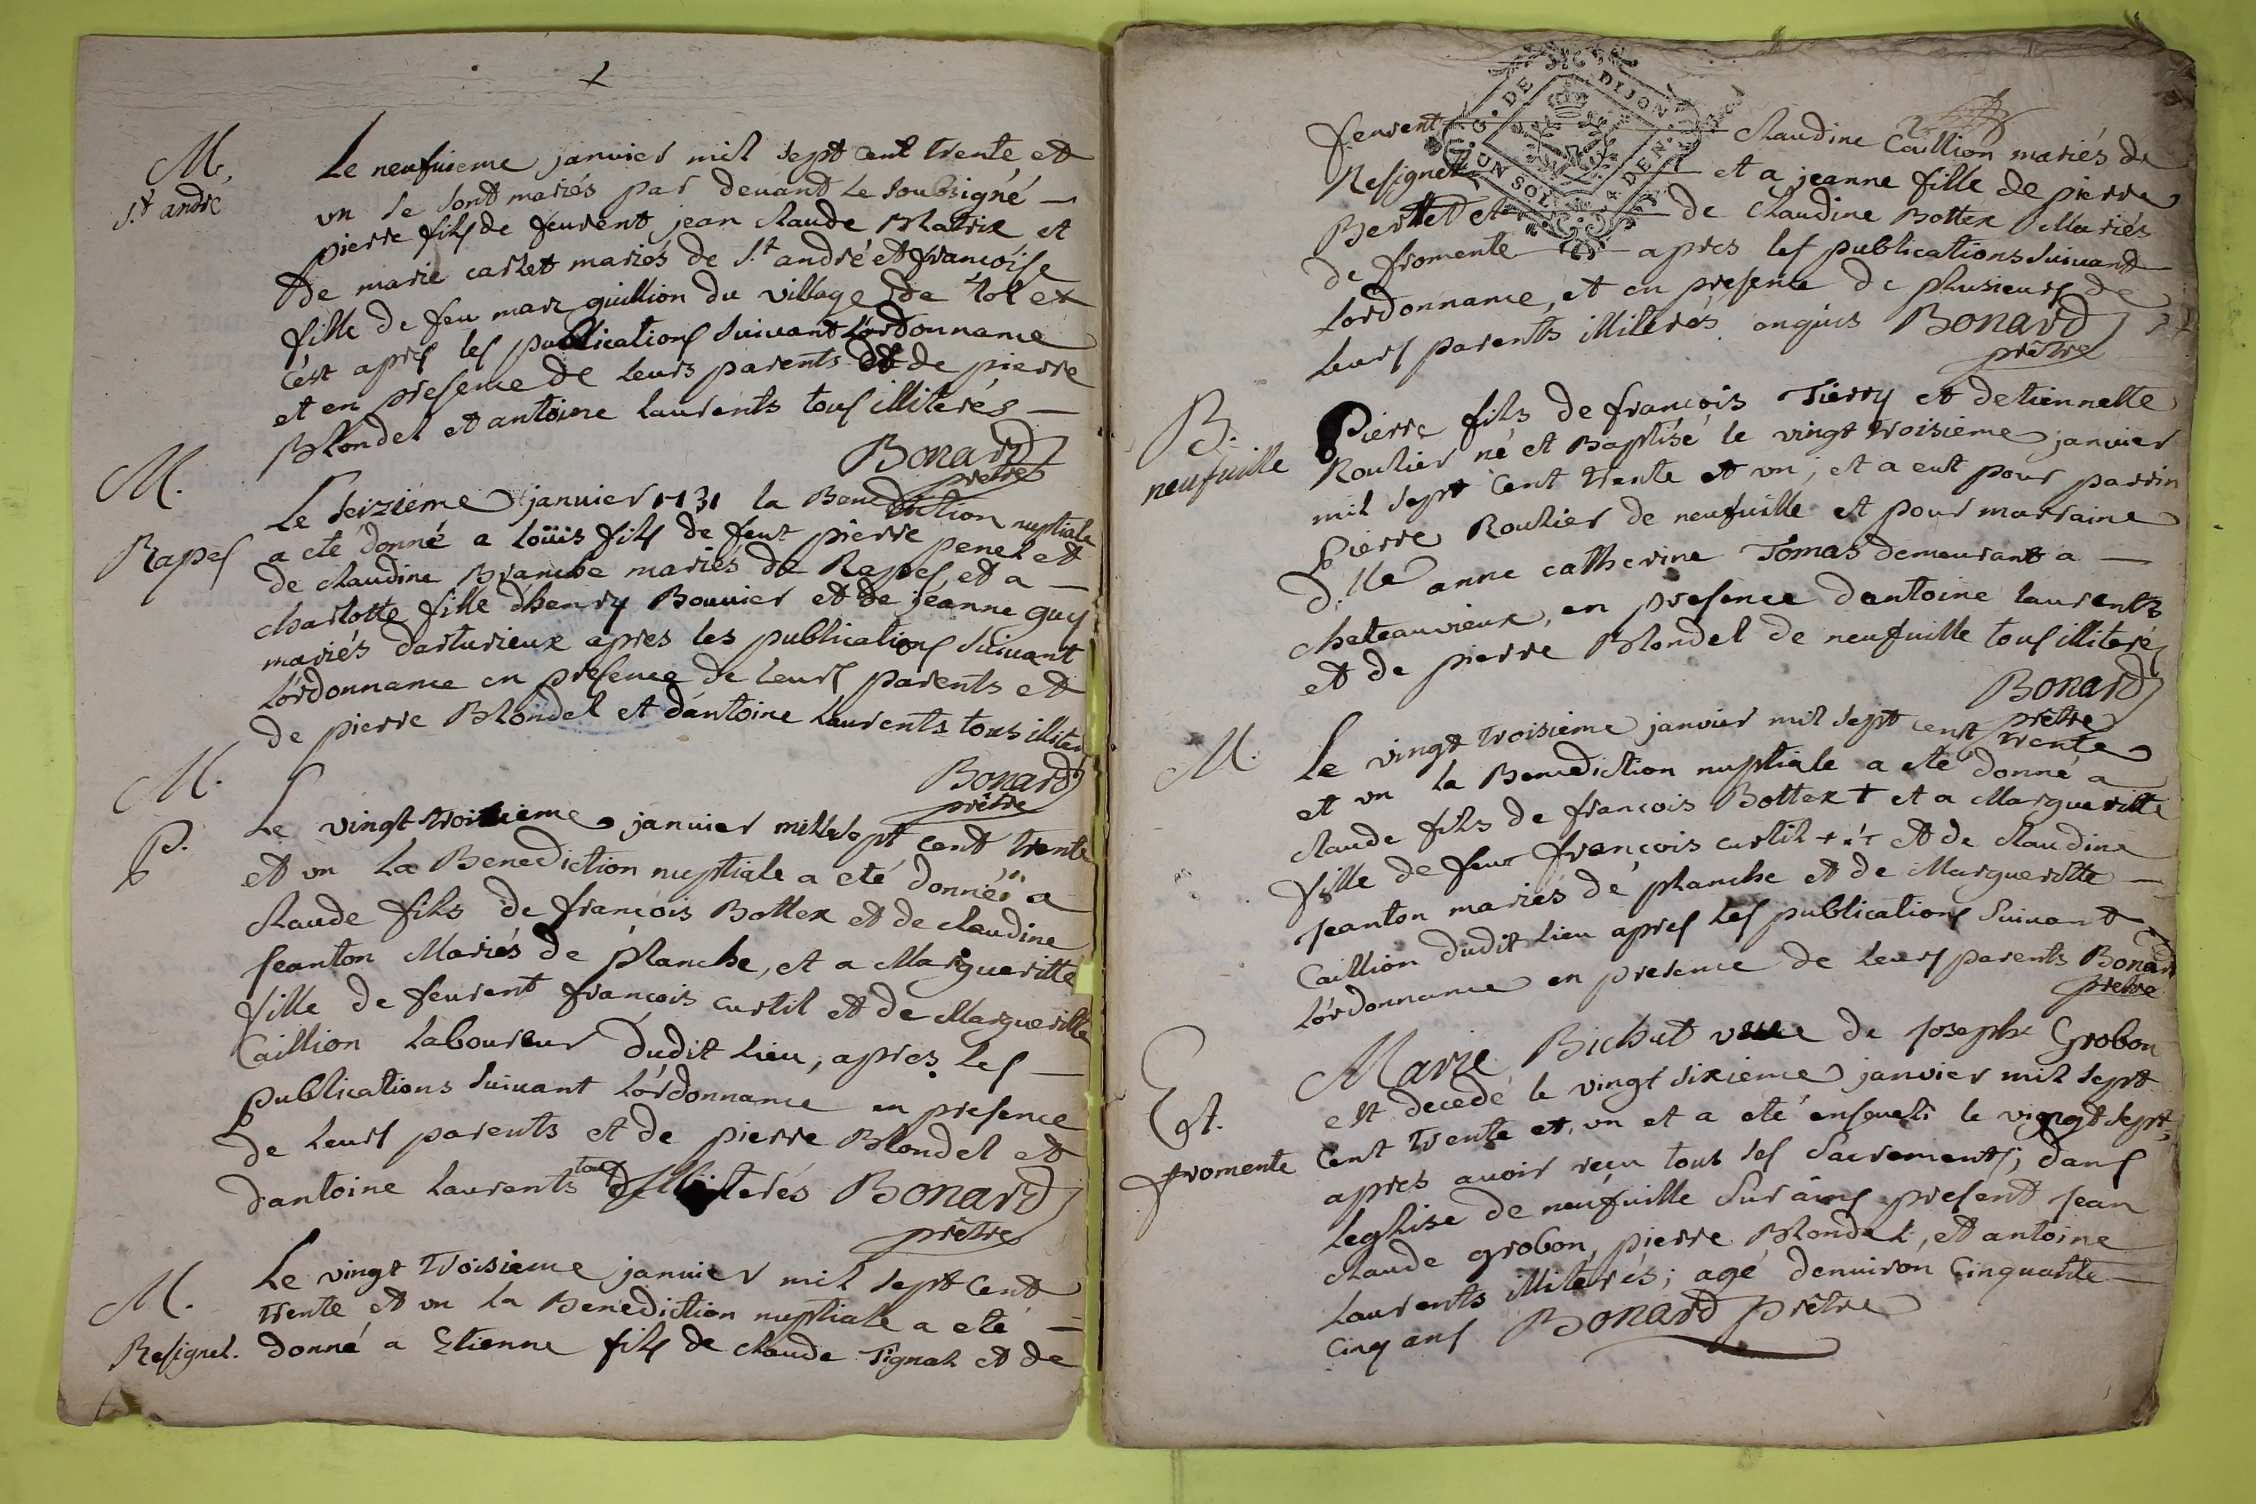 M.
St andré
Le neufuieme janvier mil sept cent trente et
un se sont mariés par deuant le soubsigné
pierre fils de feuvent jean claude Matrix et
de marie carlet mariés de St andré et françoise
fille de feu marc guillion du village de
c'est apres les publications suivant l'ordonnance
et en presence de leurs parents et de pierre
Blondel et antoine laurents tous illiterés
Bonard
prêtre
M.
Rapes
Le seizieme janvier 1731 la Benediction nuptiale
a eté donné a loüis fils de feut pierre penel et
de claudine Branche mariés de Rapes, et a
charlotte fille d'henry Bouvier et de jeanne guy
mariés darturieux apres les publications suivant
l'ordonnance en presence de leurs parents et
de pierre Blondel et d'antoine laurents tous illiter
Bonard
prêtre
M.
p.
Le vingt troisieme janvier mille sept cent trente
et un la Benediction nuptiale a eté donnée a
claude fils de françois Bottex et de claudine
jeanton Mariés de planche, et a Margueritte
fille de feuvent françois curtil et de Margueritte
Caillion laboureur dudit lieu, apres les
publications suivant l'ordonnance en presence
de leurs parents et de pierre Blondel et
d'antoine laurents tous illiterés Bonard
prêtre
M.
Resignel.
Le vingt troisieme janvier mil sept cent
trente et un la Benediction nuptiale a eté
donné a Etienne fils de claude Tignat et de
G. DE DIJON
UN SOL 4 DEN.
feuvent claudine Caillion mariés de
Resignel et a jeanne fille de pierre
Berttet et de claudine Bottex Mariés
de fromente apres les publications suivant
l'ordonnance, et en presence de plusieurs de
leurs parents illiterés enquis Bonard
prêtre
B.
neufuille
Pierre fils de françois Tierry et detiennette
Roulier né et Baptisé le vingt troisieme janvier
mil sept cent trente et un, et a eut pour parrin
Pierre Roulier de neufuille et pour marraine
d.lle anne catherine Tomas demeurant a
chateauvieux, en presence dantoine laurents
et de pierre Blondel de neufuille tous illiterés
Bonard
prêtre
M.
Le vingt troisieme janvier mil sept cent trente
et un la Benediction nuptiale a eté donné a
claude fils de françois Bottex + et a Margueritte
fille de feut françois curtil + et de claudine
jeanton mariés de planche et de Margueritte
Caillion dudit lieu apres les publications suivant
l'ordonnance en presence de leurs parents Bonard
prêtre
Et.
fromente
Marie Bichat veuve de joseph Grobon
est decedé le vingt sixieme janvier mil sept
cent trente et un et a eté enseveli le vingt sept,
apres avoir reçu tous ses sacrements; dans
leglise de neufuille sur ains present jean
claude grobon, pierre Blondel, et antoine
laurents illiterés; agé denviron cinquante
cinq ans Bonard prêtre